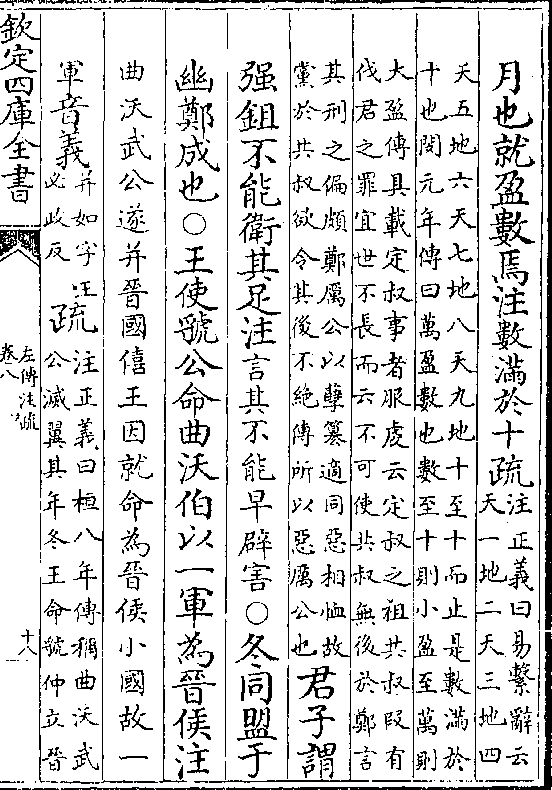 月也就盈數焉注數滿於十疏
注正義曰易繫辭云
天一地二天三地四
天五地六天七地八天九地十至十而止是數滿於
十也閔元年傳曰萬盈數也數至十則小盈至萬則
大盈傳具載定叔事者服虔云定叔之祖共叔段有
伐君之罪宜世不長而云不可使共叔無後於鄭言
其刑之偏頗鄭厲公以孽篡適同惡相恤故
黨於共叔欲令其後不絶傳所以惡厲公也
君子謂
强鉏不能衛其足注言其不能早辟害○冬同盟于
幽鄭成也○王使虢公命曲沃伯以一軍為晉侯注
曲沃武公遂并晉國僖王因就命為晉侯小國故一
軍音義
并如字
必政反
疏
注正義曰桓八年傳稱曲沃武
公滅翼其年冬王命虢仲立晉
欽定四庫全書
左傳注疏
卷八
十八